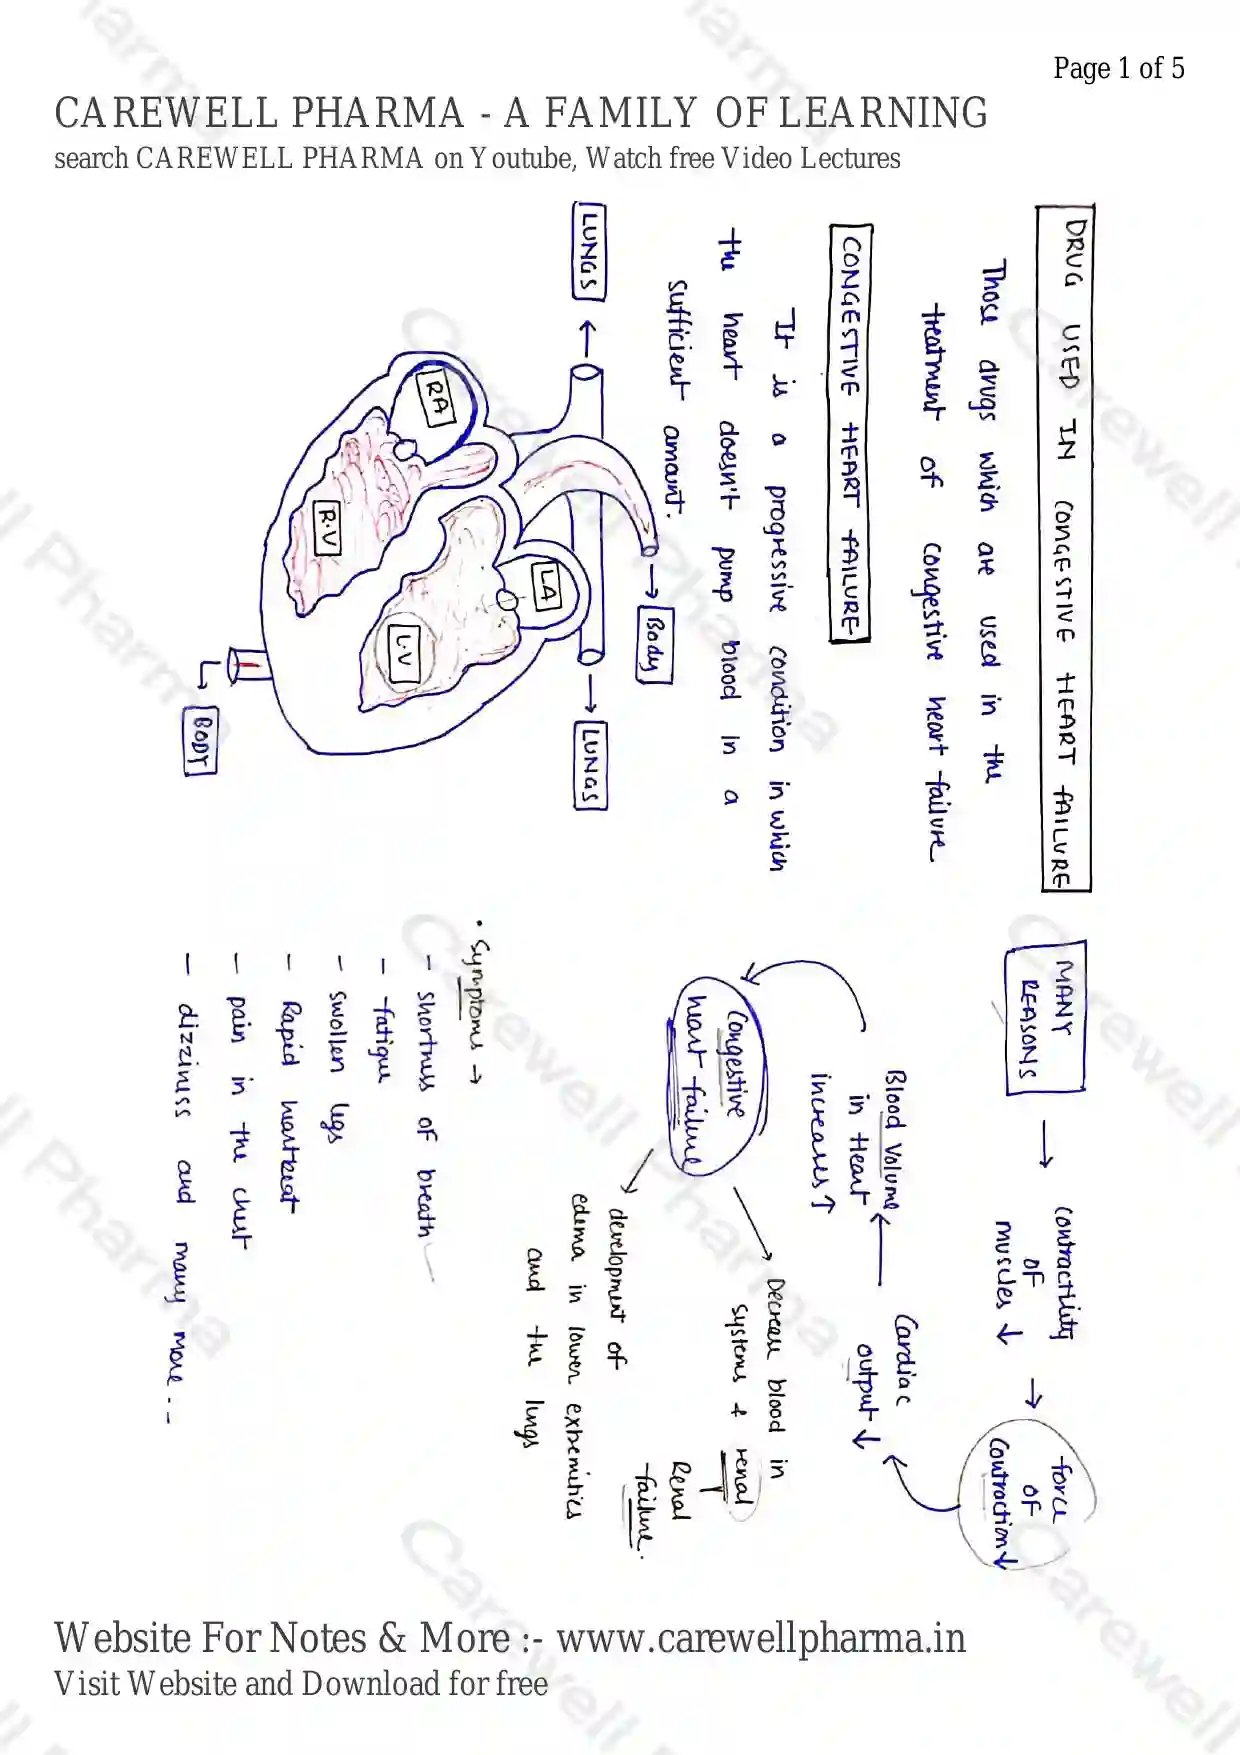 Page 1 of 5
CAREWELL PHARMA - A FAMILY OF LEARNING
search CAREWELL PHARMA on Youtube, Watch free Video Lectures
DRUG USED IN CONGESTIVE HEART FAILURE
Those drugs which are used in the
treatment of congestive heart failure
CONGESTIVE HEART FAILURE
It is a progressive condition in which
the heart doesn't pump blood in a
sufficient amount.
LUNGS
Body
LUNGS
RA
LA
R.V
L.V
BODY
MANY
REASONS
→
Contractility
of
muscles ↓
→
force
OF
Contraction↓
Cardiac
output ↓
Blood Volume
in Heart
increases ↑
Congestive
heart failure
Decrease blood in
systems & renal
Renal
failure.
development of
edema in lower extremitics
and the lungs
• Symptoms →
- shortness of breath
- fatigue
- swollen legs
- Rapid heartbeat
- pain in the chest
- dizziness and many more . . -
Website For Notes & More :- www.carewellpharma.in
Visit Website and Download for free
Carewell Pharma